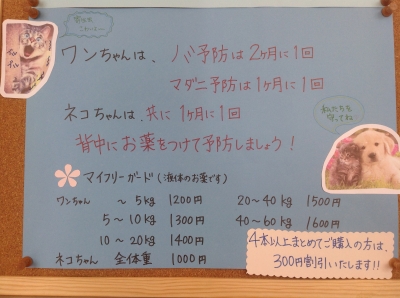 ワンちゃんは、ノミ予防は2ヶ月に1回
マダニ予防は1ヶ月に1回
ネコちゃんは、共に1ヶ月に1回
背中にお薬をつけて予防しましょう!
私たちを
守ってね
マイフリーガード(液体のお薬です)
ワンちゃん ~5kg 1200円 20~40kg 1500円
5~10kg 1300円 40~60kg 1600円
10~20kg 1400円
ネコちゃん 全体重 1000円
4本以上まとめてご購入の方は、
300円割引いたします!!